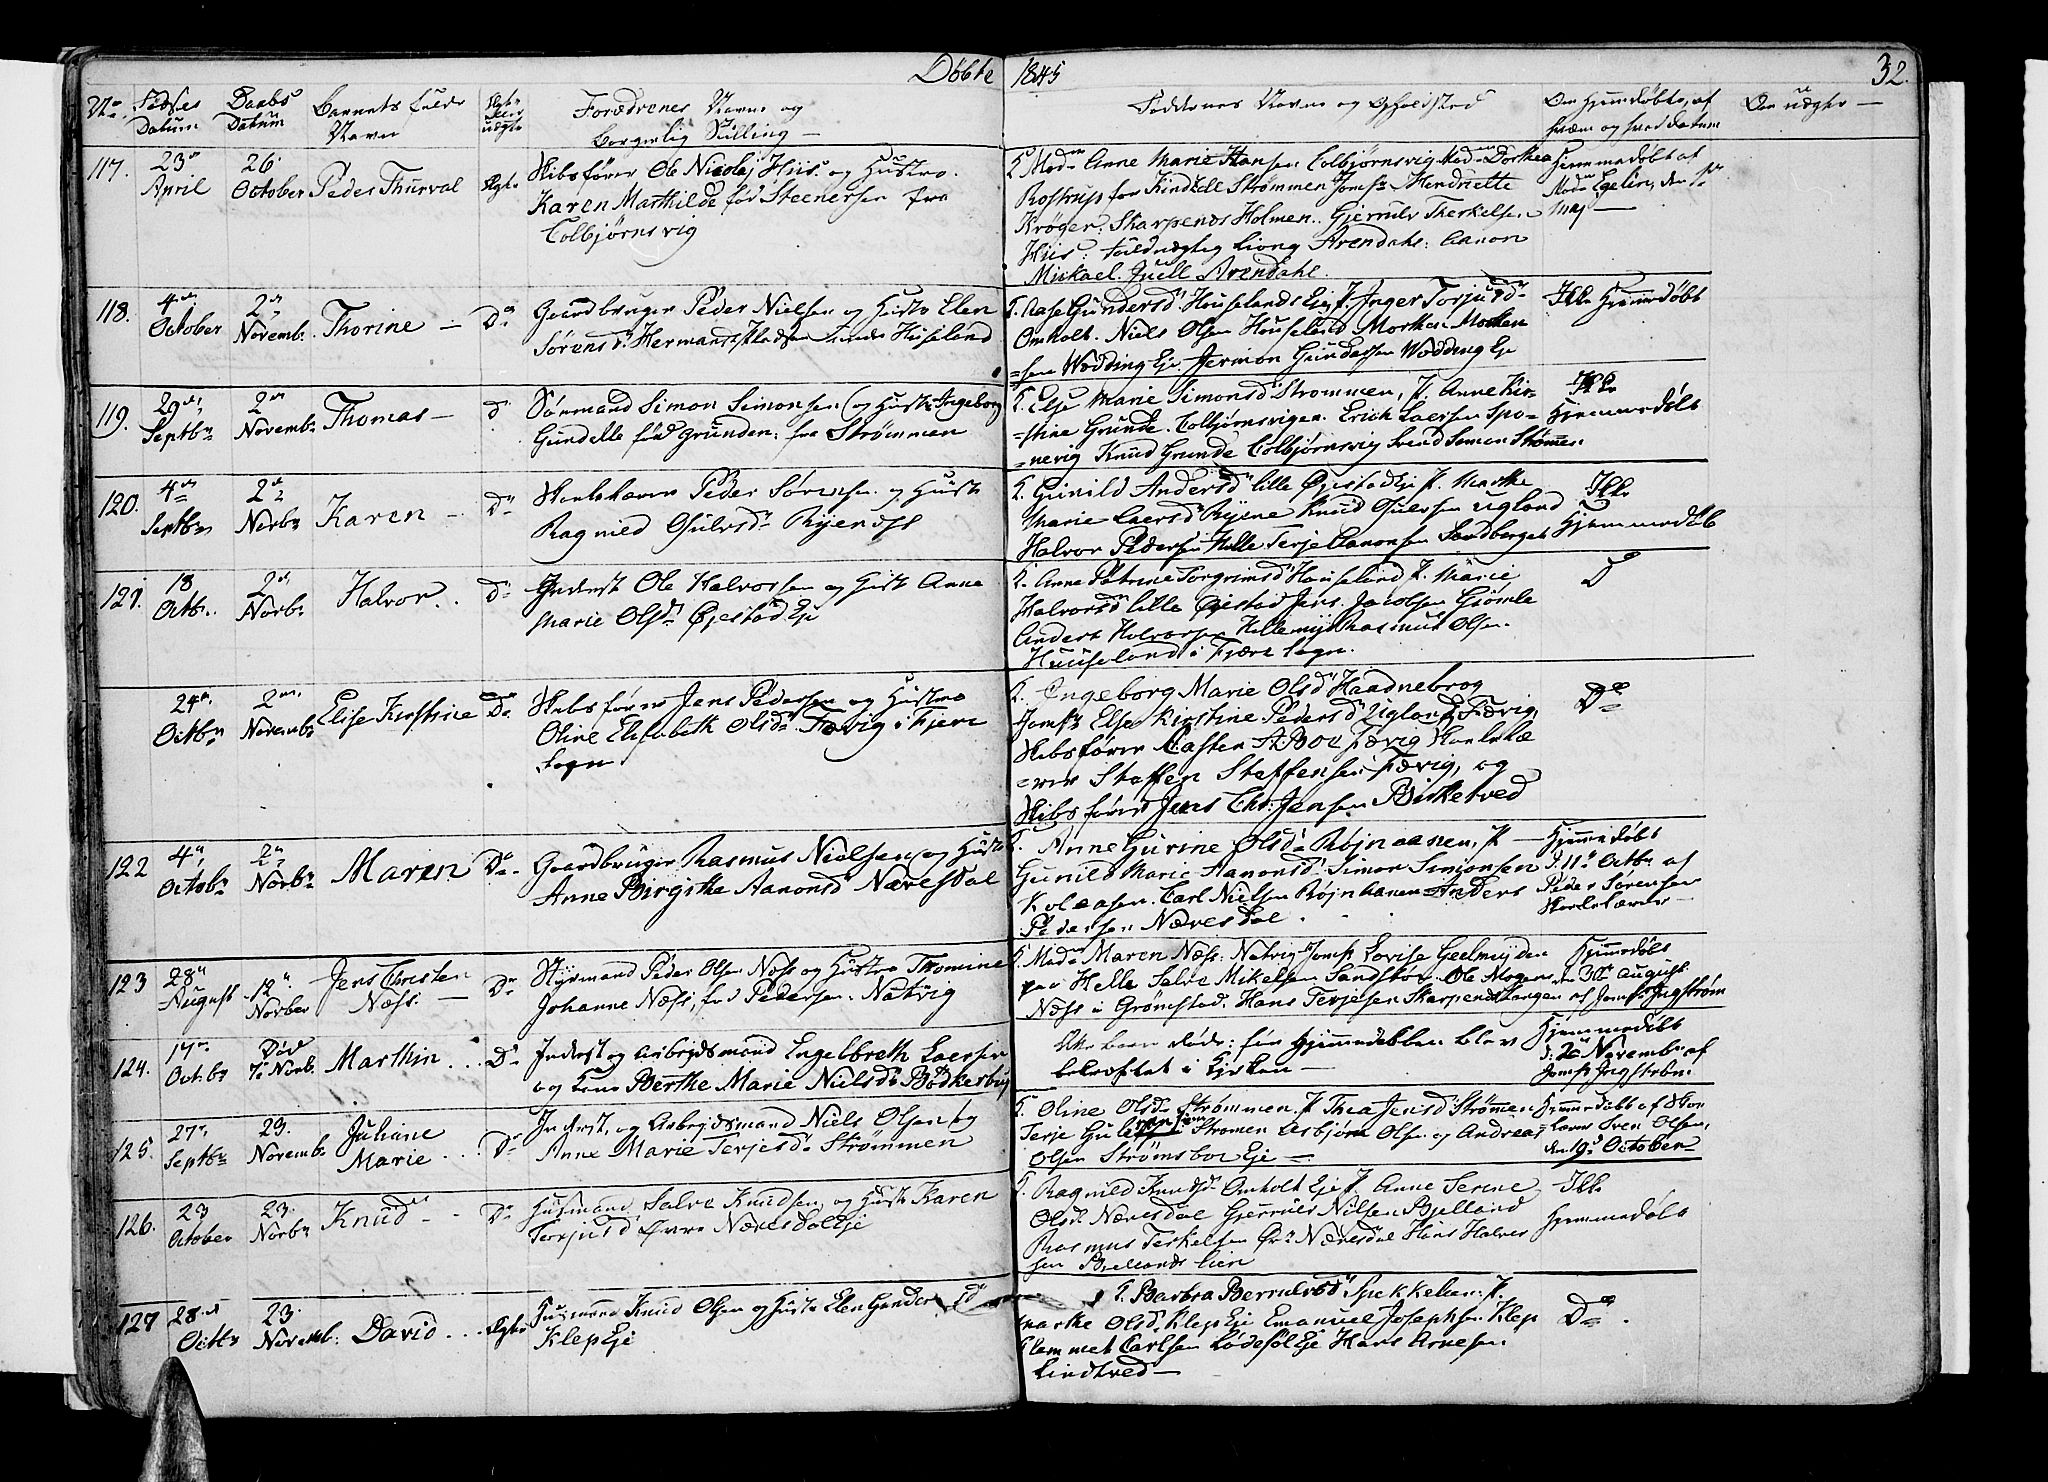 Døbte 1845 32.
No. Fødsels Datum Daabs Datum Barnets fulde Navn Ægte eller uægte Forældrenes Navne og borgerlig Stilling —
Faddernes Navne og Opholdsted Om hjemmedøbte, af hvem og hvad datum Om uægte —
117. 23de April 26. October Peder Thurval Ægte
Skibsfører Ole Nicolaj Hiis og Hustro.
Karen Marthilde fød Steenersen fra
Colbjørnsvig
Madm Anne Marie Hansen Colbjørnsvig Madm Dorthea
Rostrup fra Kindsdl Strømmen Jomfr Hendriette
Krøger: Skarpenæs Holmen. Gjerrulv Therkelsen
Hiis: Arendahl: Aanon
Mickael Juell Arendahl.
Hjemmedøbt af
Madm Egelin, den 1ste
Maj —
118. 4de October 2de Novembr Thorine — Do
Gaardbruger Peder Nielsen og Hustr Elen
Sørensdr Hermans Huseland
Gundersdr Houselands Eie, Inger Torjusdr
Omholt. Niels Olsen Houseland Morthen Morthen
=sen Wedding Eje. Jermon Gundersen Wedding Eje
Ikke Hjemmedøbt
119. 29de Septbr 2den Novembr Thomas — d
Sømand Simon Simonsen og Hustr Ingeborg
Gundelle fød Grunden: fra Strømmen
Else Marie Simonsdr Strømmen, Anne Kir-
=stine Grunde. Colbjørnsvigen. Erick Laersen Spo-
=nevig Knud Grunde Colbjørnsvig Svend Simon Strømen
Ikke
Hjemmedøbt
120. 4de Septbr 2de Novbr Karen — Do
Skolelærer Peder Sørensen og Hustr
Ragnild Gulvsdr Ryenæs
Gunild Andersdr lille Øjestad Eje Marthe
Marie Laersdr Ryene Knud Gulvsen Ugland
Halvor Pedersen Helle Terje Aanonsen Sandberget
Ikke
Hjemmedøb
121. 18 Octbr. 2de Novbr Halvor. . Do
Inderst Ole Halvorsen og Hustr Anne
Marie Olsdr Øjestad Eje
Anne Petrine Torgrimsdr Houseland Marie
Halvorsdr lille Øjestad Jens Jacobsen Grømle
Anders Halvorsen Hellemyr Rasmus Olsen.
Huuseland i Fjære Sogn.
D
24de Octbr 2den Novembr Elise Kirstine Do
Skibsfører Jens Pedersen og Hustro
Oline Elisabeth Olsdr Fævig i Fjere
Sogn
Engeborg Marie Olsdr Haadnebrog
Jomfr Else Kirstine Pedersdr Ugland Fævig,
Skibsfører Casten A. Boe Fævig Skolelæ
=rer Staffen Steffensen Fævig, og
Skibsfører Jens Chr: Jensen Birketved
Do
122 4de Octobr 2de Novbr Maren Do
Gaardbruger Rasmus Nielsen og Hustr
Anne Birgithe Aanonsdr Næresdal
Anne Gurine Olsdr Røjnaanen, —
Gunild Marie Aanonsdr. Simon Simonsen
Kolaasen. Carl Nielsen Røjnaanen Anders
Pedersen Næresdal.
Hjemmedøbt
d. 11te Octbr af
Peder Sørensen
Skolelærer —
123 28de August 12te Novber Jens Christen Næss. — Do
Styrmand Peder Olsen Næss og Hustro Thomine
Johanne Næss, fød Pedersen. Natvig
Madm Maren Næss: Natvig Jomfr Lovise Geelmuijden
paa Helle Salve Mikelsen Sandstø. Ole Mogens
Næss i Grømstad. Hans Terjesen Skarpenæs Tangen
Hjemmedøbt
den 31te August
af Jomfr Ingstrøm
124. 17de Octobr Død 7de Novb. Marthin . . . Do
Inderst og Arbejdsmand Engelbreth Laersen
og Kone Berthe Marie Nielsdr Bødkerbuj
Ikke baaren døde: før Hjemmedøbten blev
bekræftet i Kirken —
Hjemmedøbt
d: 2de Novembr af
Jomfr Ingstrøm:
125. 27de Septbr 23. Novembr Juliane Marie . . . Do
Inderst, og Arbejdsmand Niels Olsen og
Anne Marie Terjesdr Strømmen
Oline Olsdr Strømmen. Thea Jensdr Strømen
Terje Strømen Asbjørn Olsen og Andreas
Olsen Strømsboe Eje —
Hjemedøbt af Skole
Lærer Sven Olsen,
den 19de October
126. 23 October 23. Novbr Knud — . Do
Husmand Salve Knudsen og Hustr Karen
Torjusdr Øvre Næresdal Eje
Ragnild Knudsdr Omholt Eje Anne Serine
Olsdr Næresdal Gjerrulv Nilsen Bjelland
Rasmus Terkelsen Øvr Næresdal Hans Halvor
sen Bjellands lien
Ikke
Hjemmedøbt
127 28de Octbr 23. Novemb. David . . . Ægte
Husmand Knud Olsen og Hustr Elen Gunder sdr
Klep Eje
Barbra Berrulvsdr Spekkelien:
Marthe Olsdr. Klep Eje Emanuel Josephsen Klep
Clemmet Carlsen Lødesøl Eje Hans Arnesen
Lindtved —
Do.